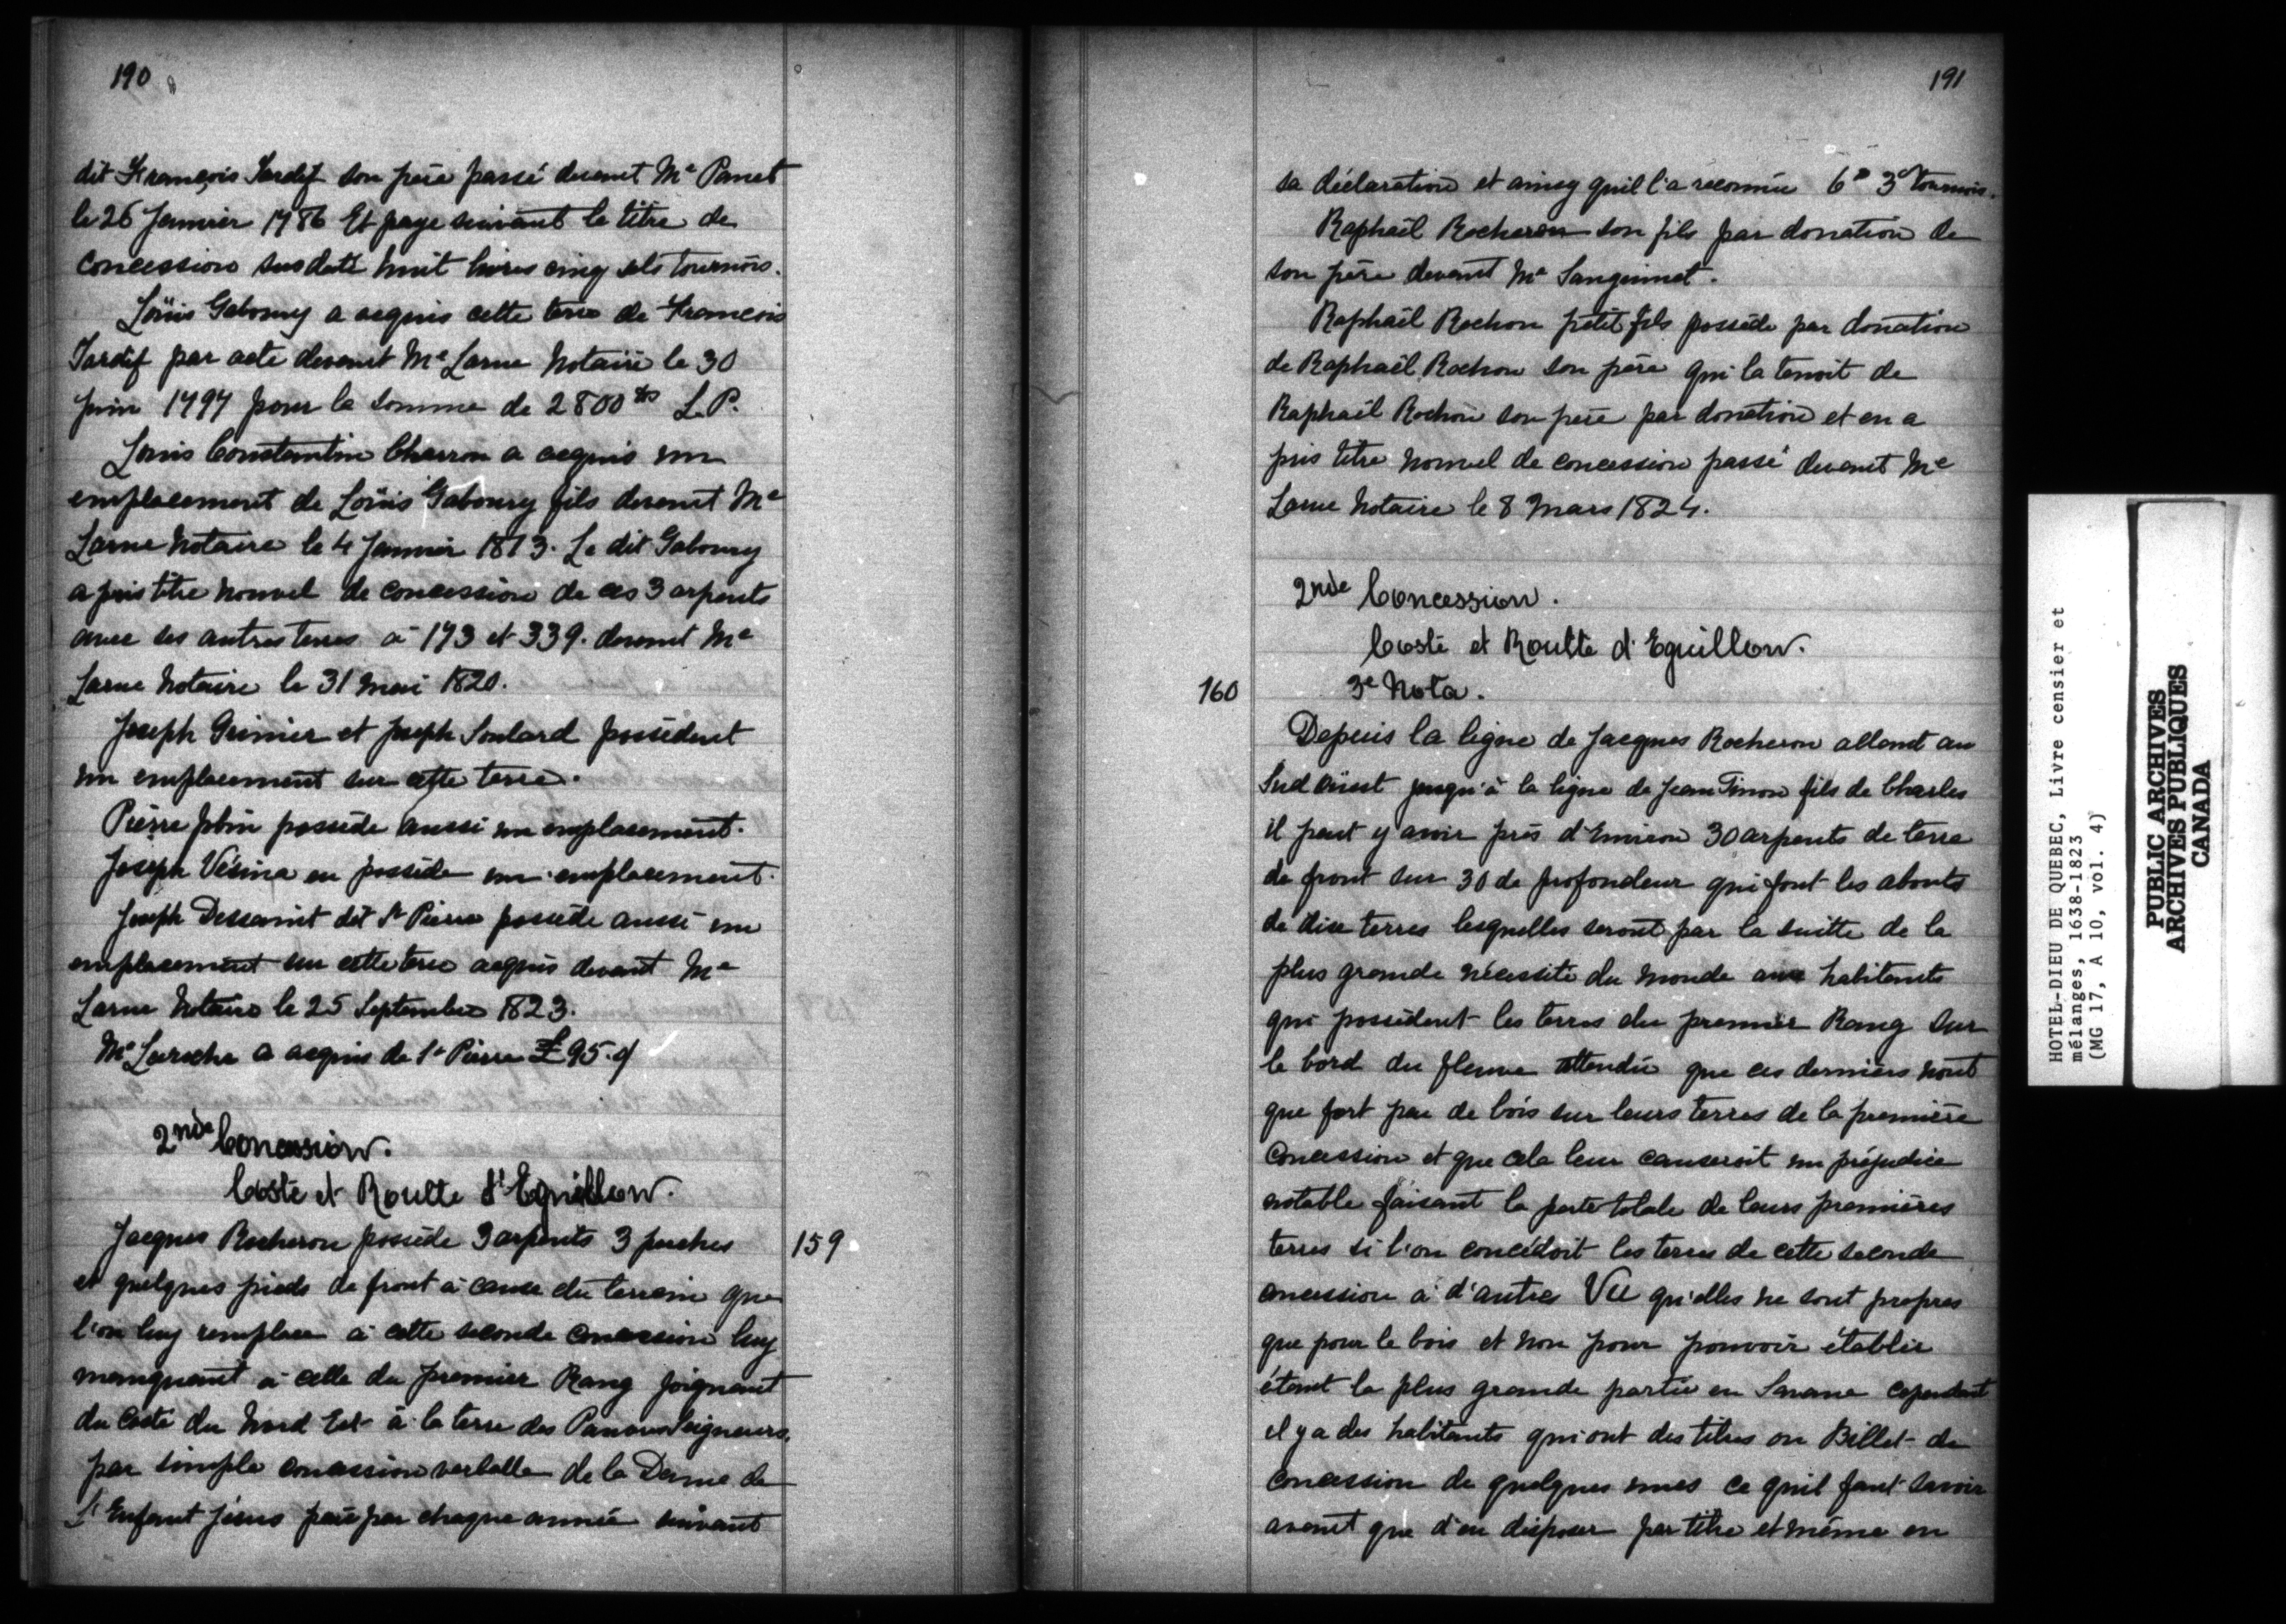 190
dit François Tardif son père passé devant Me Panet
le 26 Janvier 1786 Et paye suivant le titre de
Concession susdaté huit livres cinq sols tournois.
Loüis Gaboury a acquis cette terre de François
Tardif par acte devant Me Larue Notaire le 30
Juin 1797 pour la somme de 2800 L.P.
Louis Constantin Charron a acquis un
emplacement de Loüis Gaboury fils devant Me
Larue Notaire le 4 Janvier 1813. Le dit Gaboury
a pris titre nouvel de concession de ces 3 arpents
avec ses autres terres à 173 et 339. devant Me
Larue Notaire le 31 Mai 1820.
Joseph Grenier et Joseph Soulard possèdent
un emplacement sur cette terre.
Pierre Jobin possède aussi un emplacement.
Joseph Vésina en possède un emplacement.
Joseph Dessaint dit St Pierre possède aussi un
emplacement sur cette terre acquis devant Me
Larue Notaire le 25 Septembre 1823.
Mr Laroche a acquis de St Pierre £95.
2nde Concession.
Coste et Roulte d'Eguillon.
Jacques Rocheron possède 3 arpents 3 perches
et quelques pieds de front à cause du terrain que
l'on luy remplace à cette seconde concession luy
manquant à celle du premier Rang joignant
du Costé du Nord Est à la terre des Pauvres Seigneurs,
par simple concession verballe de la Dame de
L'Enfant Jésus paie par chaque année suivant
159
191
sa déclaration et ainsy quil l'a reconnüe 6 3d tournois.
Raphaël Rocheron son fils par donation de
son père devant Me Sanguinet.
Raphaël Rochon petit fils possède par donation
de Raphaël Rochon son père qui la tenoit de
Raphaël Rochon son père par donation et en a
pris titre nouvel de concession passé devant Me
Larue Notaire le 8 Mars 1824.
2nde Concession.
Coste et Roulte d'Eguillon.
160
3e Nota.
Depuis la ligne de Jacques Rocheron allant au
Sud oüest jusqu'à la ligne de Jean Tinon fils de Charles
il peut y avoir près d'Environ 30 arpents de terre
de front sur 30 de profondeur qui font les abouts
de dix terres lesquelles seront par la suitte de la
plus grande nécessité du Monde aux habitants
qui possèdent les terres du premier Rang sur
le bord du fleuve attendu que ces derniers n'ont
que fort peu de bois sur leurs terres de la première
Concession et que cela leur causeroit un préjudice
notable faisant la perte totale de leurs premières
terres si l'on concédoit les terres de cette seconde
concession à d'autres Vu qu'elles ne sont propres
que pour le bois et non pour pouvoir établir
étant la plus grande partie en Savane cependant
il y a des habitants qui ont des titres ou Billet de
concession de quelques unes ce quil faut savoir
avant que d'en disposer par titre et même en
HOTEL-DIEU DE QUEBEC, Livre censier et
mélanges, 1638-1823
(MG 17, A 10, vol. 4)
PUBLIC ARCHIVES
ARCHIVES PUBLIQUES
CANADA